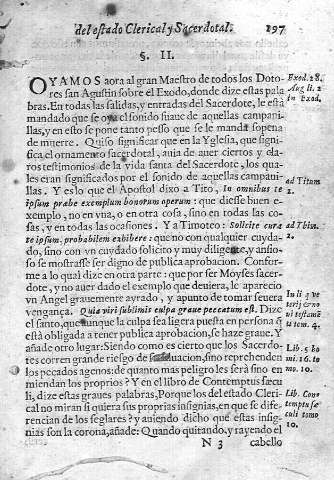 del estado Clerical y Sacerdotal. 197
§. II.
OYAMOS aora al gran Maestro de todos los Doto- Exod. 28.
res san Agustin sobre el Exodo, donde dize estas pala Aug li. 2
bras. En todas las salidas, y entradas del Sacerdote, le està in Exod.
mandado que se oyga el sonido suaue de aquellas campani-
llas, y en esto se pone tanto pesso que se le manda sopena
de muerre. Quiso significar que en la Yglesia, que signi-
fica el ornamento sacerdotal, auia de auer ciertos y cla-
ros testimonios de la vida santa del Sacerdote, los qua-
les eran significados por el sonido de aquellas campani-
llas. Y es lo que el Apostol dixo a Tito, In omnibus te ad Titum
ipsum præbe exemplum bonorum operum: que diesse buen e- 2.
xemplo, no en vna, o en otra cosa, sino en todas las co-
sas, y en todas las ocasiones. Y a Timoteo: Solicite cura ad Thim.
te ipsum, probabilem exibere: que no con qualquier cuyda- 2.
do, sino con vn cuydado solicito y muy diligente, y ansio-
so se mostrasse ser digno de publica aprobacion. Confor-
me a lo qual dize en otra parte: que por ser Moyses sacer-
dote, y no auer dado el exemplo que deuiera, le aparecio
vn Angel grauemente ayrado, y apunto de tomar seuera
vengança. Quia viri sublimis culpa graue peccatum est. Dize
el santo, que aunque la culpa sea ligera puesta en persona q
està obligada a tener publica aprobacion, se haze graue. Y
añade otro lugar: Siendo como es cierto que los Sacerdo-
tes corren grande riesgo de saluacion, sino reprehenden
los pecados agenos: de quanto mas peligro les serà sino en
miendan los proprios? Y en el libro de Contemptus sæcu
li, dize estas graues palabras, Porque los del estado Cleri-
cal no miran si quiera sus proprias insignias, en que se dife-
rencian de los seglares? y auiendo dicho que estas insig-
nias son la corona, añade: Quando quitando, y rayendo el
N 3 cabello